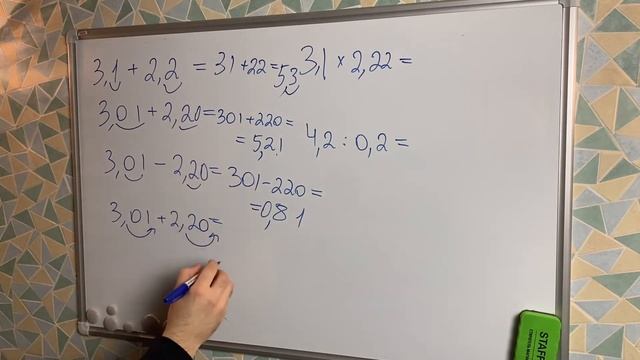 3,1 + 2,2 = 31 + 22 = 5,3
3,01 + 2,20 = 301 + 220 =
= 5,21
3,01 - 2,20 = 301 - 220 =
= 0,81
3,01 + 2,20 =
3,1 × 2,22 =
4,2 : 0,2 =
STAFF